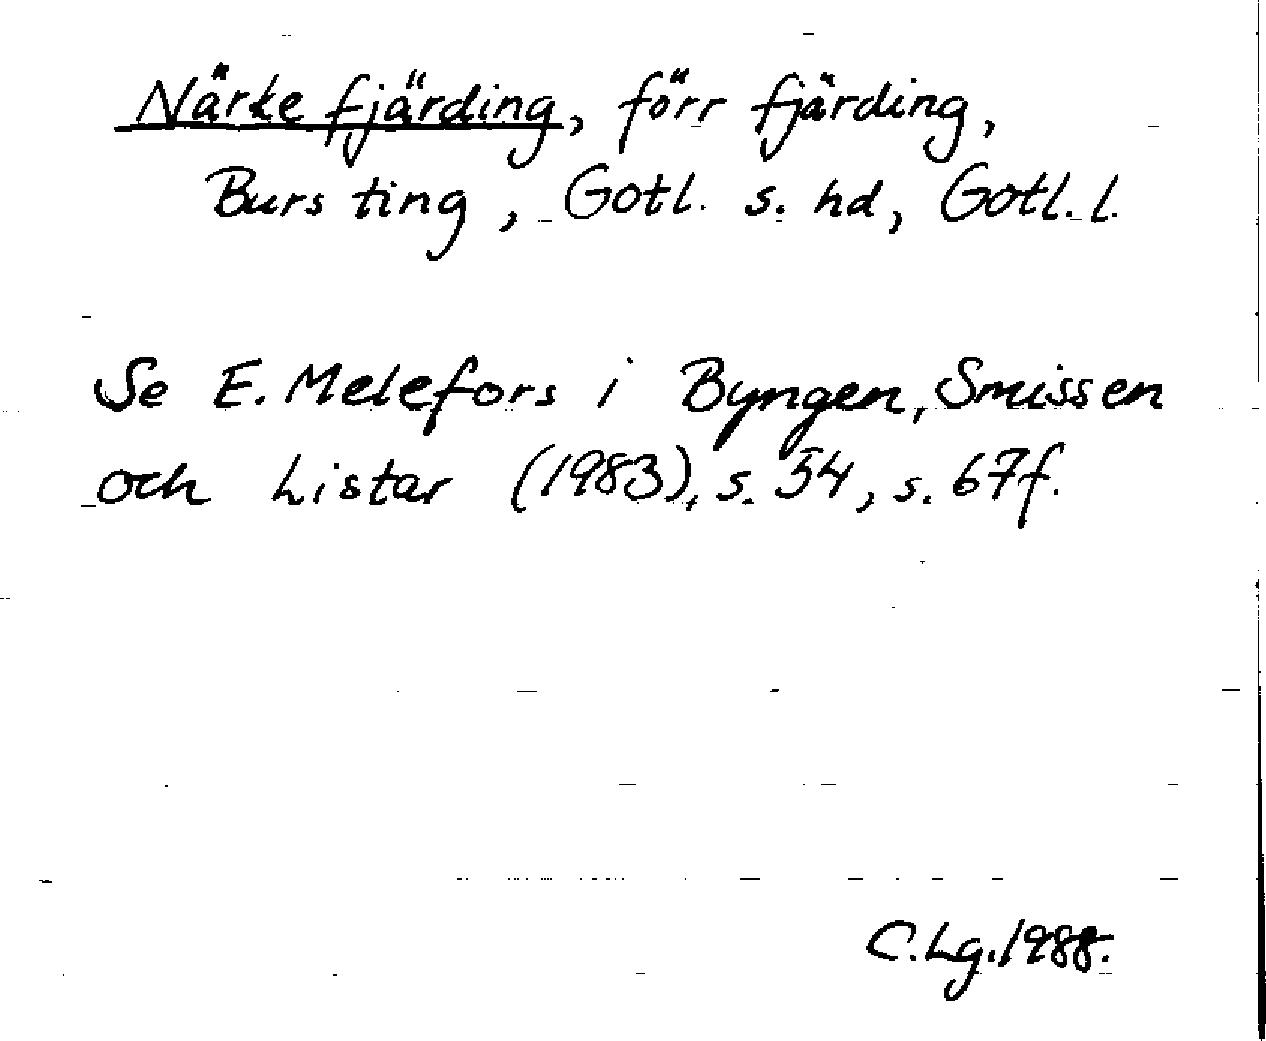 Närke fjärding, förr fjärding,
Burs ting, Gotl. s. hd, Gotl. l.
Se E. Melefors i Byngen, Smissen
och Listar (1983), s. 54, s. 67f.
C.Lg. 1988.